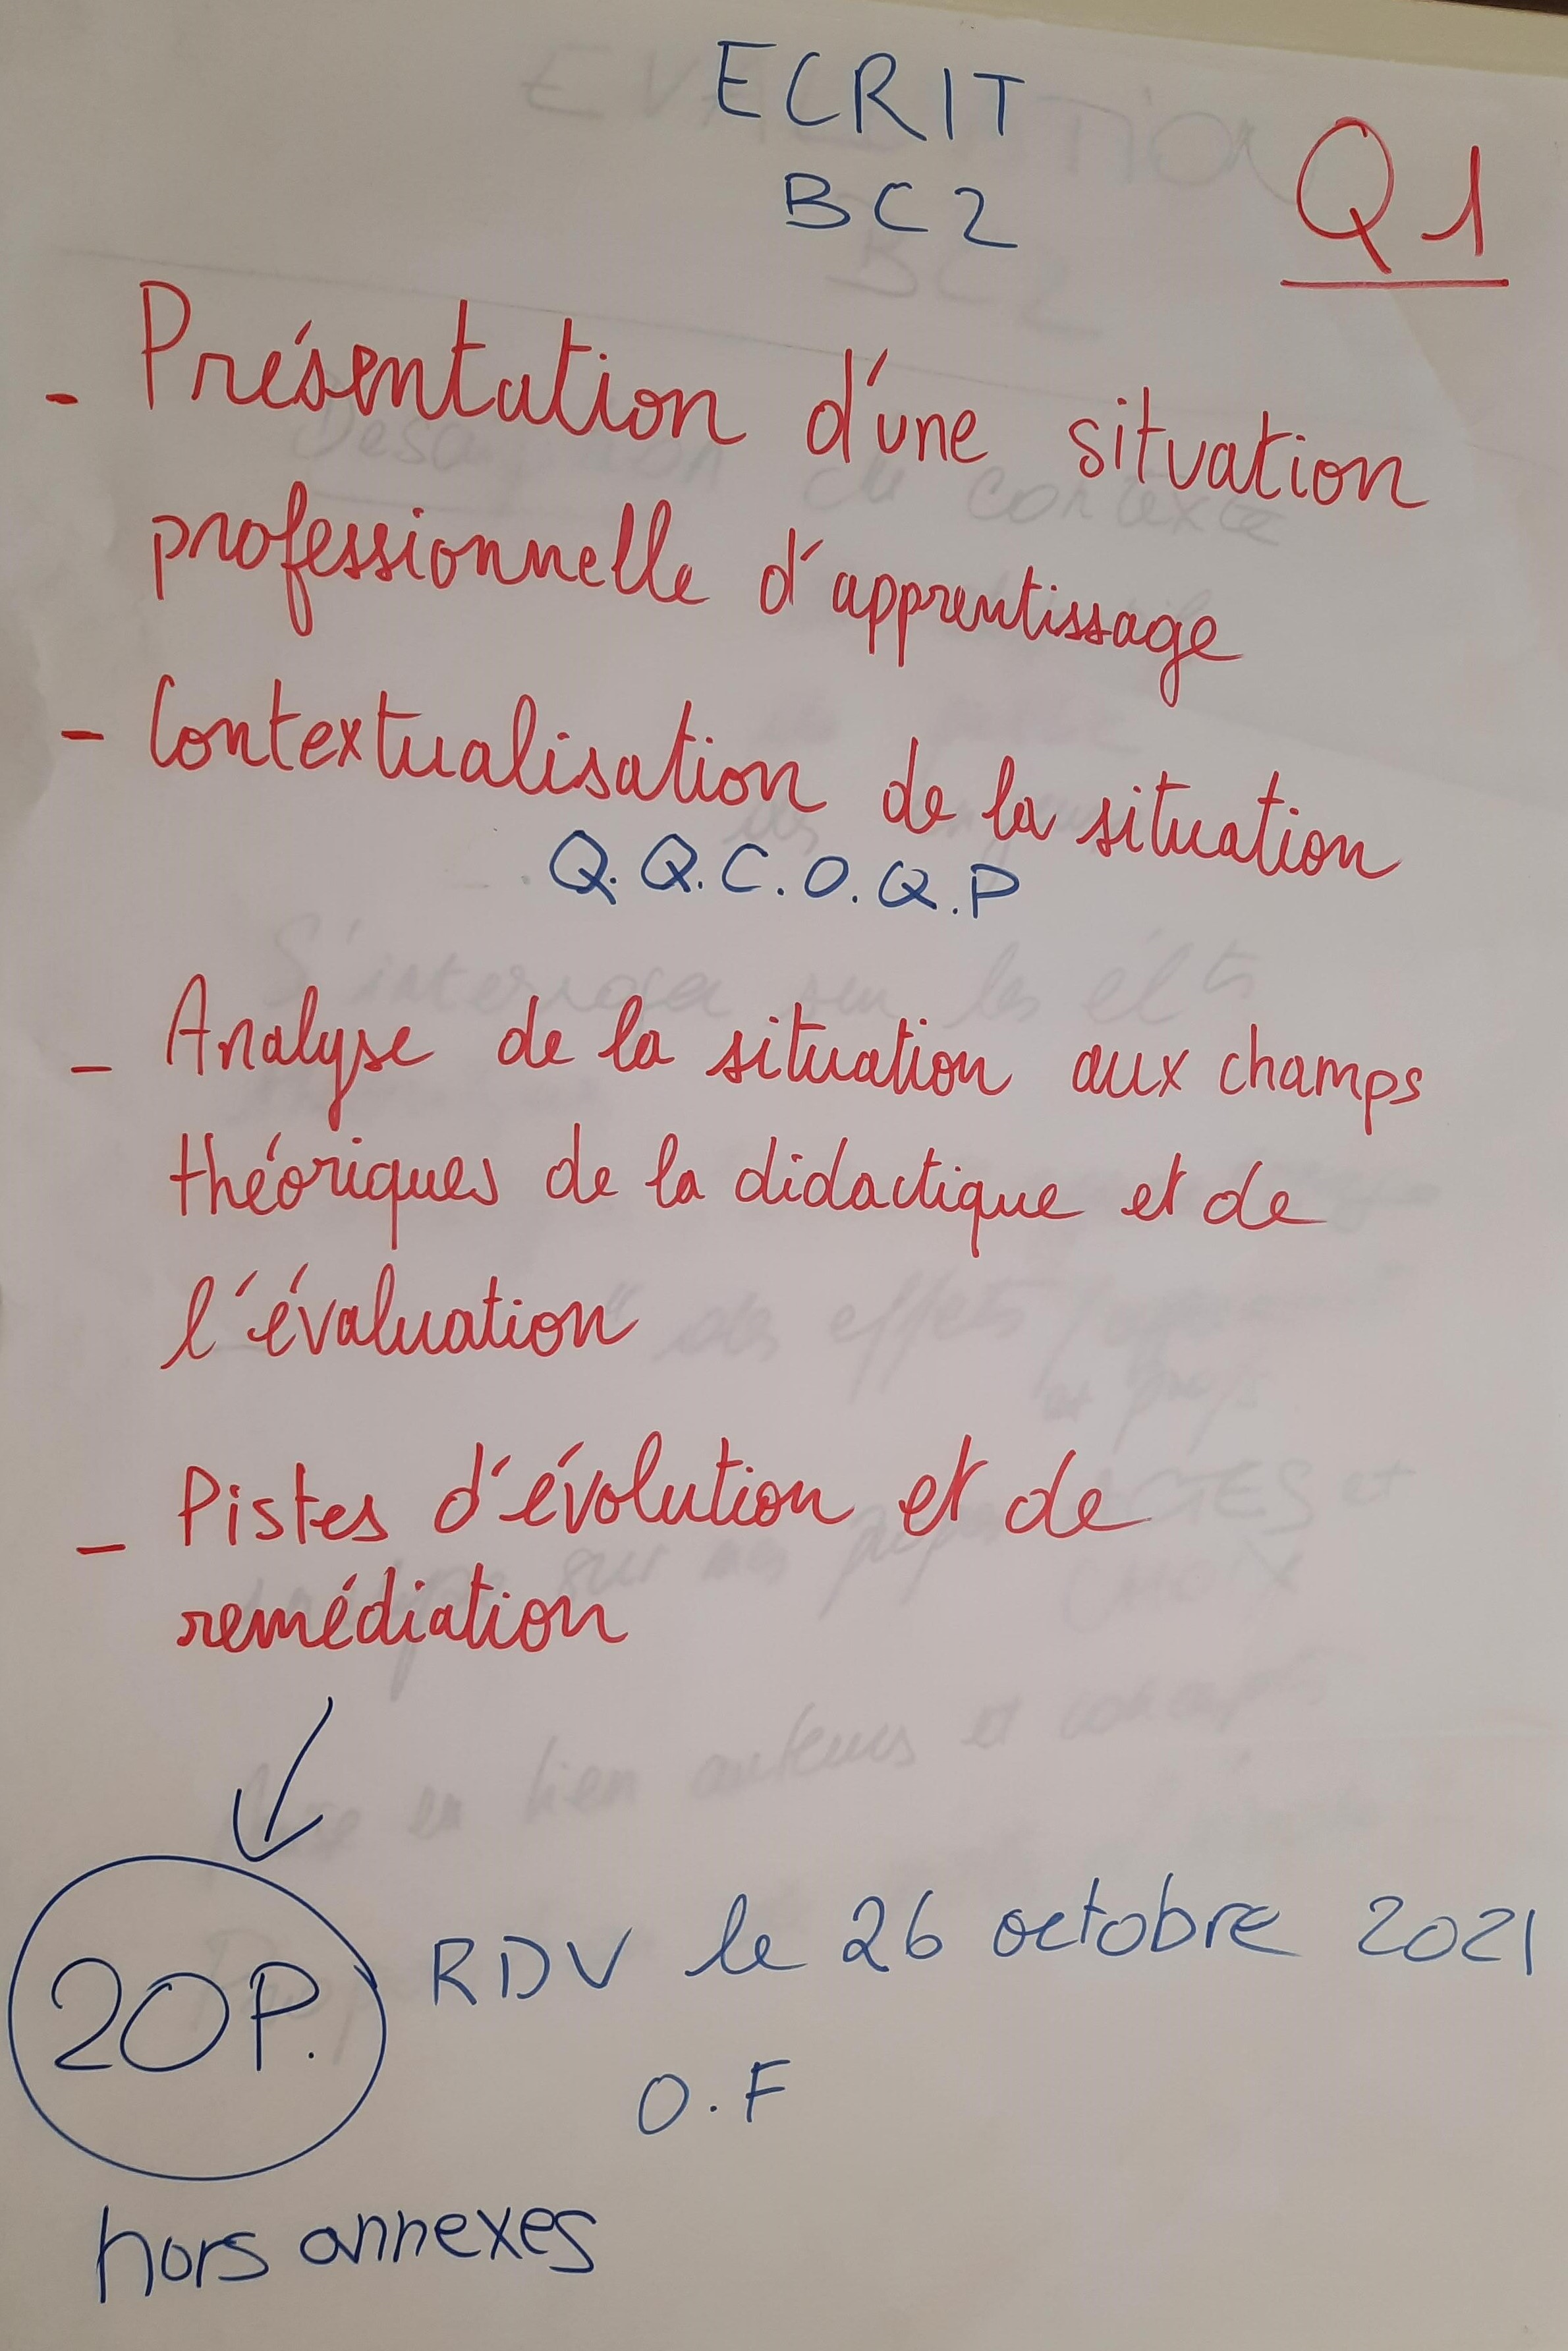 ECRIT
BC2
Q1
- Présentation d'une situation
professionnelle d'apprentissage
- Contextualisation de la situation
Q.Q.C.O.Q.P
- Analyse de la situation aux champs
théoriques de la didactique et de
l'évaluation
- Pistes d'évolution et de
remédiation
20P.
RDV le 26 octobre 2021
O.F
hors annexes